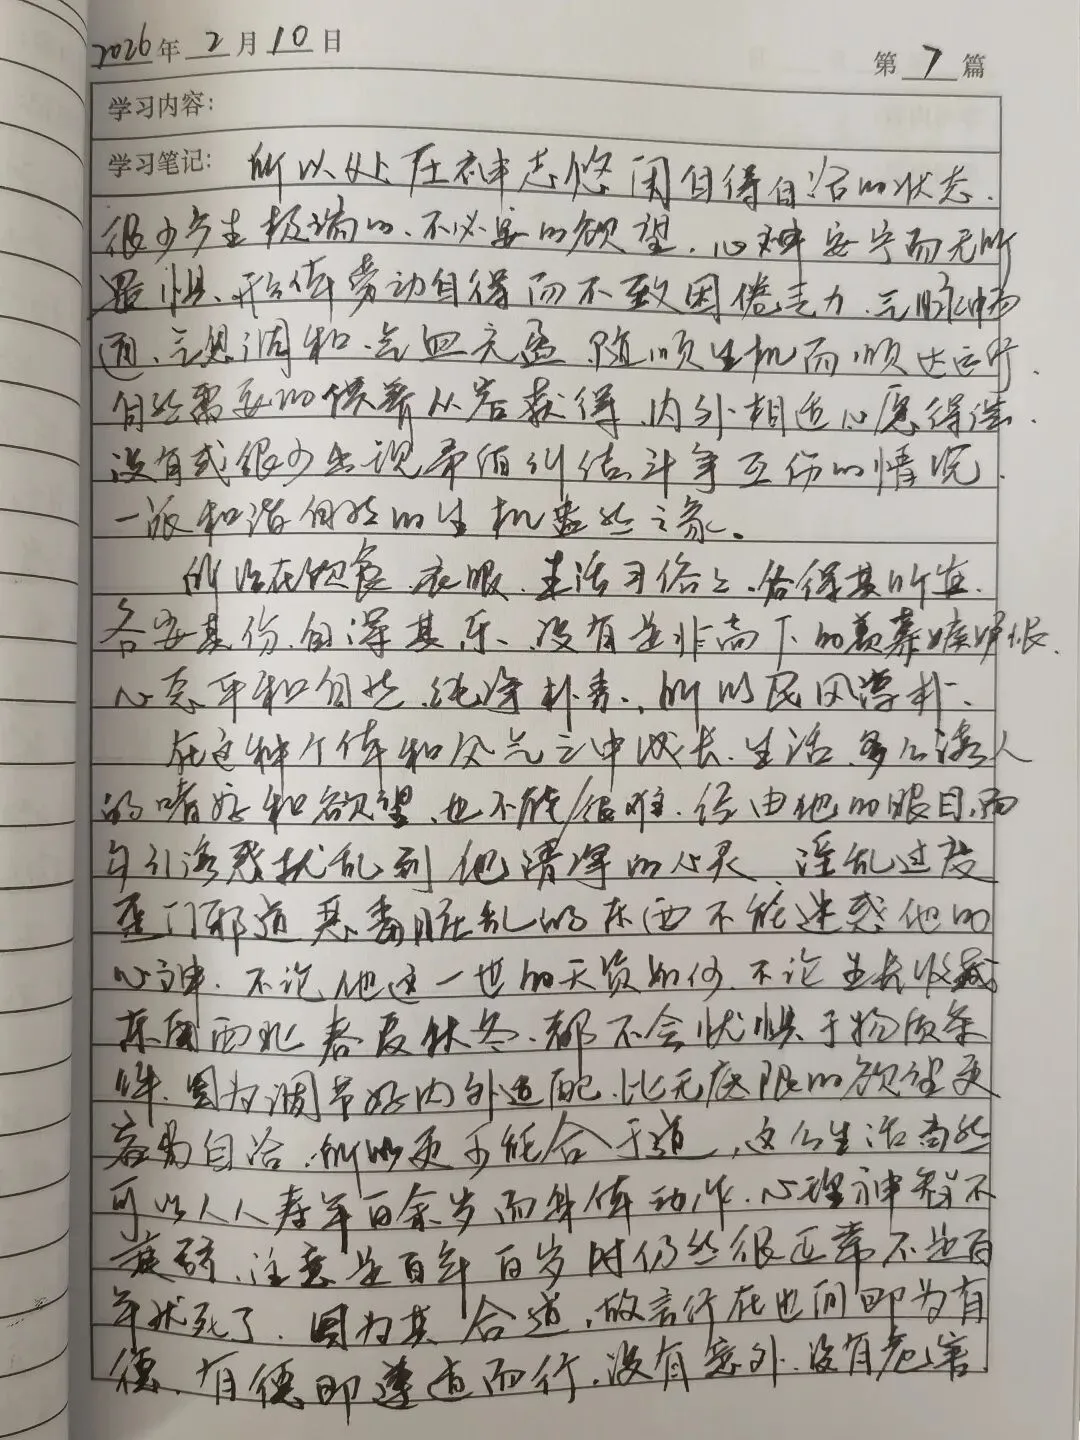 2026年 2 月 10 日
第 7 篇
学习内容：
学习笔记： 所以处在神志悠闲自得自洽的状态，
很少产生极端的、不必要的欲望，心神安宁而无所
畏惧、形体劳动自得而不致困倦乏力，气脉畅
通、气息调和、气血充盈，随顺生机而顺达运行，
自然需要的供养从容获得，内外相适心愿得偿，
没有或很少出现矛盾纠结斗争互伤的情况，
一派和谐自然的生机盎然之象。
所以在饮食、衣服、生活习俗上，各得其所宜，
各安其份，自得其乐、没有是非高下的羡慕嫉妒恨，
心态平和自然，纯净朴素，所以民风淳朴。
在这种个体和风气之中成长、生活，多么诱人
的嗜好和欲望，也不能/很难，经由他的眼目，而
勾引诱惑扰乱到他清净的心灵，淫乱过度
歪门邪道恶毒脏乱的东西不能迷惑他的
心神，不论他这一世的天资如何，不论生长收藏
东南西北春夏秋冬，都不会忧惧于物质条
件，因为调节好内外适配，比无底限的欲望更
容易自洽，所以更于能合于道，这么生活当然
可以人人寿年百余岁而身体动作、心理神智不
衰弱，注意是百年百岁时仍然很正常不是百
年就死了，因为其合道，故言行在世间即为有
德，有德即遵道而行，没有意外，没有危害，